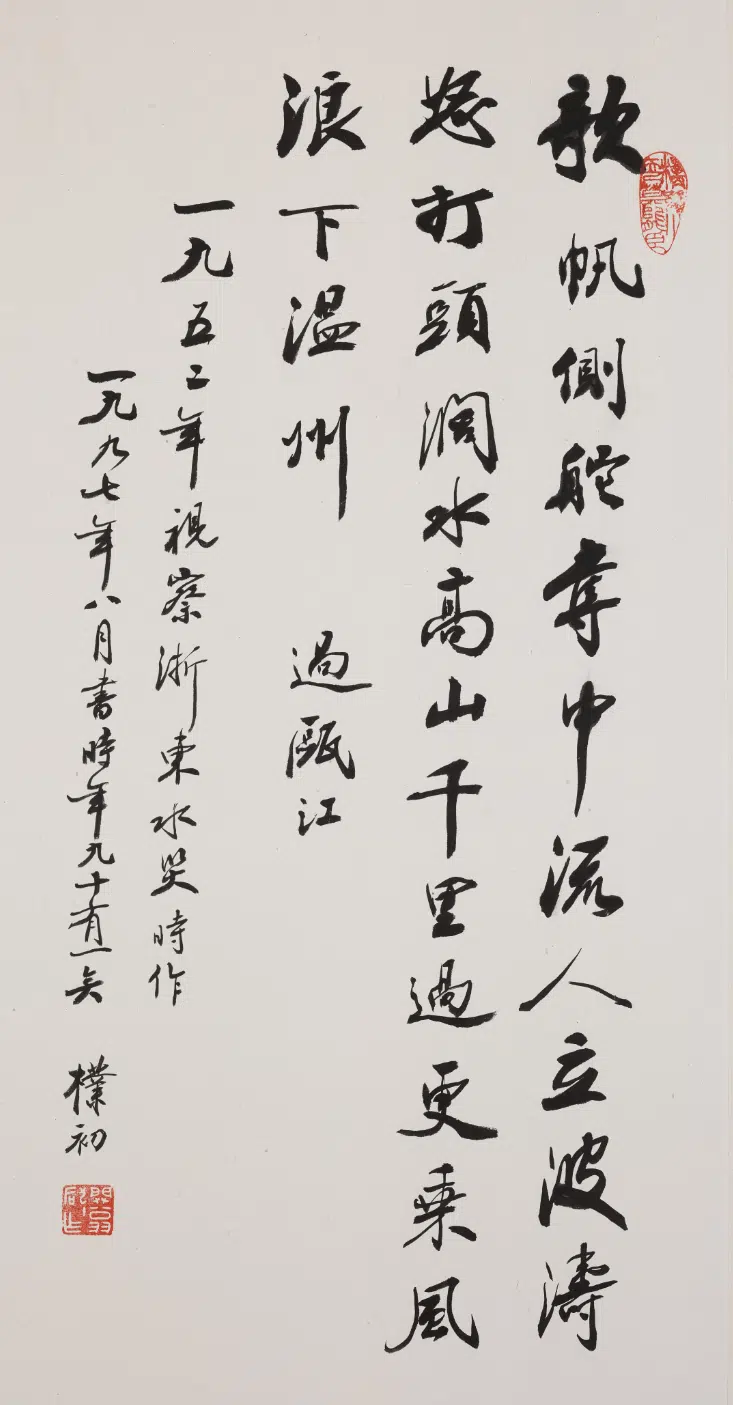 欹帆側舵奪中流人立波濤
怒打頭濶水高山千里過更乗風
浪下温州　過甌江
一九五二年視察浙東水災時作
一九九七年八月書時年九十有一矣　樸初